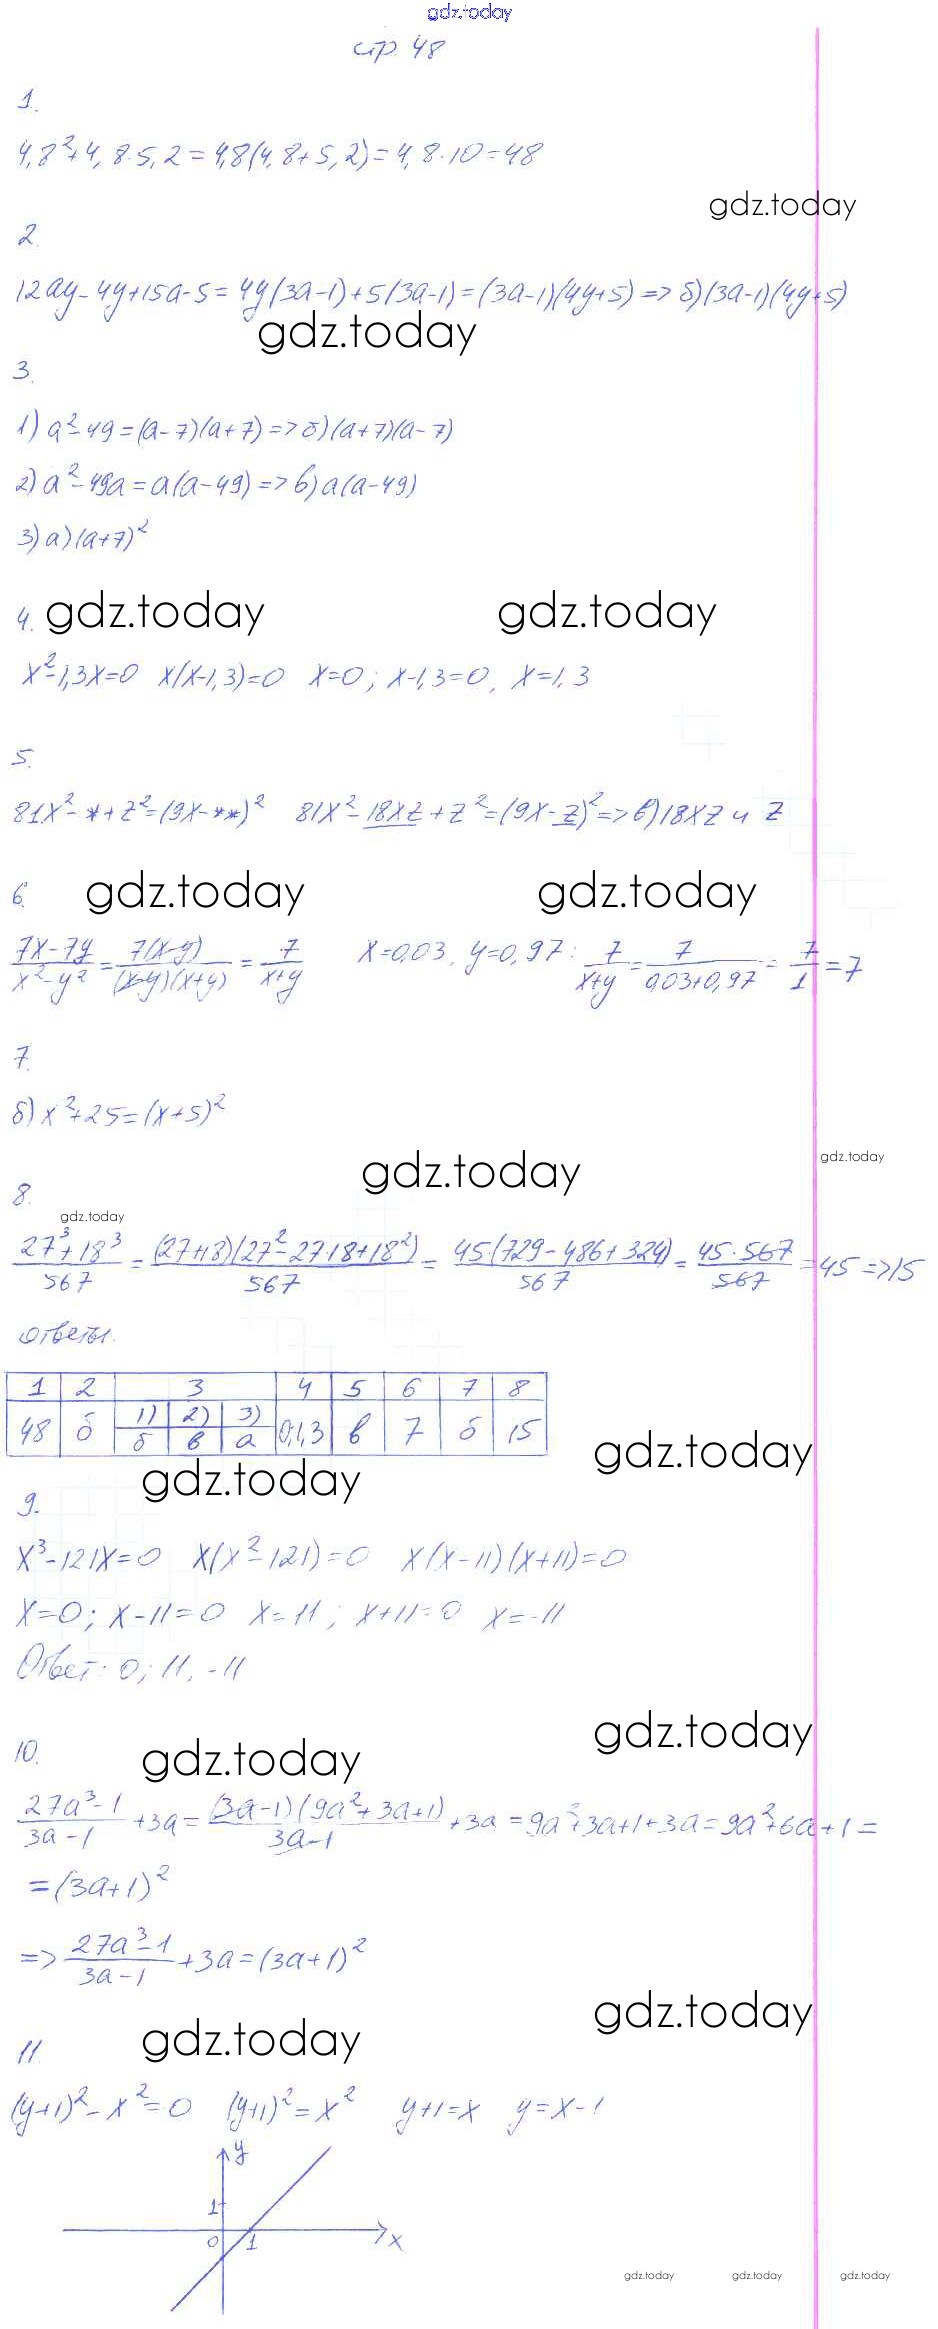 gdz.today
стр. 48
1.
4,8²+4,8·5,2=4,8(4,8+5,2)=4,8·10=48
gdz.today
2.
12ay-4y+15a-5=4y(3a-1)+5(3a-1)=(3a-1)(4y+5)=>б)(3a-1)(4y+5)
gdz.today
3.
1) a²-49=(a-7)(a+7)=>б)(a+7)(a-7)
2) a²-49a=a(a-49)=>в)a(a-49)
3) а)(a+7)²
4. gdz.today gdz.today
x²-1,3x=0 x(x-1,3)=0 x=0; x-1,3=0, x=1,3
5.
81x²-*+z²=(9x-**)² 81x²-18xz+z²=(9x-z)²=>в)18xz и z
6. gdz.today gdz.today
(7x-7y)/(x²-y²)=7(x-y)/((x-y)(x+y))=7/(x+y) x=0,03, y=0,97: 7/(x+y)=7/(0,03+0,97)=7/1=7
7.
б) x²+25=(x+5)²
gdz.today gdz.today
8.
gdz.today
(27³+18³)/567=(27+18)(27²-27·18+18²)/567=45(729-486+324)/567=45·567/567=45=>15
ответы.
1 2 3 4 5 6 7 8
48 б 1) 2) 3) 0;1,3 в 7 б 15
б в а
gdz.today gdz.today
9.
x³-121x=0 x(x²-121)=0 x(x-11)(x+11)=0
x=0; x-11=0 x=11; x+11=0 x=-11
Ответ: 0; 11, -11
gdz.today gdz.today
10.
(27a³-1)/(3a-1)+3a=(3a-1)(9a²+3a+1)/(3a-1)+3a=9a²+3a+1+3a=9a²+6a+1=
=(3a+1)²
=>(27a³-1)/(3a-1)+3a=(3a+1)²
gdz.today gdz.today
11.
(y+1)²-x²=0 (y+1)²=x² y+1=x y=x-1
y
1
0 1 x
gdz.today gdz.today gdz.today